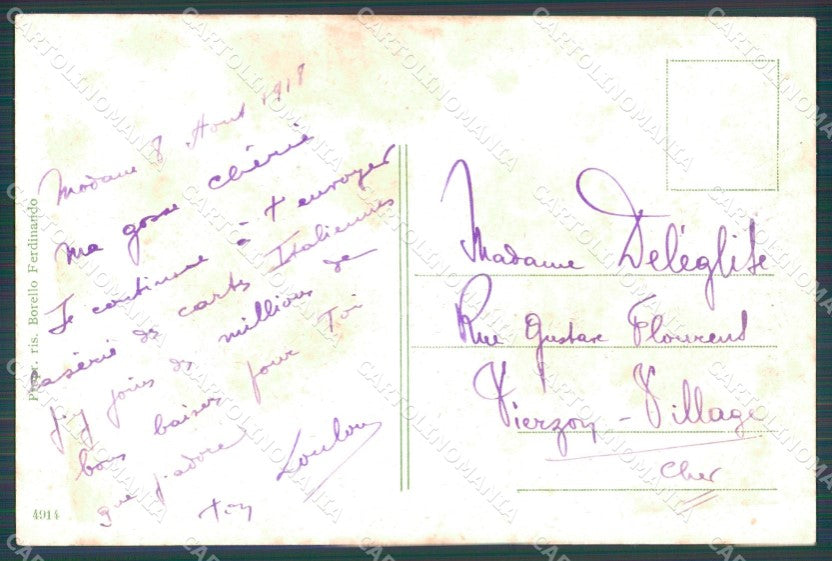 Modane 8 Aout 1918
ma gosse chérie
Je continue à t'envoyer
la série de cartes Italiennes
j'y joins des millions de
bons baisers pour Toi
que j'adore
ton Loulou
Madame Deléglise
Rue Gustave Flourens
Vierzon - Village
Cher
Propr. ris. Borello Ferdinando
4914
CARTOLINOMANIA